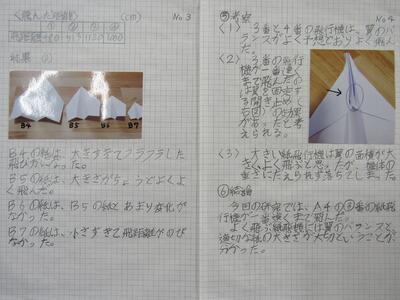 <飛んだ距離> (cm) No.3
結果 (2)
B4 B5 B6 B7
B4の紙は、大きすぎてフラフラした
飛びかたいった。
B5の紙は、大きさがちょうどでよくよ
く飛んだ。
B6の紙は、B5の紙とあまり変化が
なかった。
B7の紙は、小さすぎて飛距離がのび
なかった。
No.4
⑤考察
(1) 3番と4番の飛行機は、翼のバ
ランスがよく予想どおりよく飛ん
だ。
(2) 3番の飛行
機が一番遠く
まで飛んだの
は翼を固定す
る開き止め(
右図)の効果
があったと考
えられる。
(3) 大きい紙飛行機は翼の面積が大
きくよく飛ぶと思ったが、機体の
重さにたえられずおちてしまった。
⑥結論
今回の研究では、A4の③番の紙飛
行機が一番強くまで飛んだ。
よく飛ぶ紙飛行機には翼のバランスと
適切な紙の大きさが大切ということが
分かった。